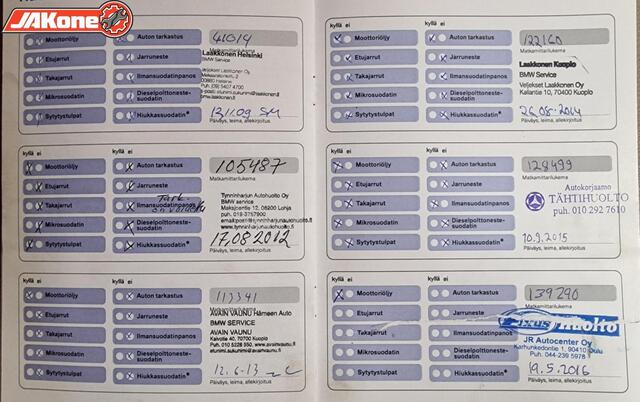 JAKone
kyllä ei
Moottoriöljy
Auton tarkastus
Etujarrut
Jarruneste
Takajarrut
Ilmansuodatinpanos
Mikrosuodatin
Dieselpolttoneste-
suodatin
Sytytystulpat
Hiukkassuodatin*
Laakkonen Helsinki
BMW Service
Veljekset Laakkonen Oy
13.11.09
Päiväys, leima, allekirjoitus
kyllä ei
kyllä ei
Moottoriöljy
Auton tarkastus
122160
Matkamittarilukema
Etujarrut
Jarruneste
Takajarrut
Ilmansuodatinpanos
Mikrosuodatin
Dieselpolttoneste-
suodatin
Sytytystulpat
Hiukkassuodatin*
Laakkonen Kuopio
BMW Service
Veljekset Laakkonen Oy
Kallantie 10, 70400 Kuopio
26.08-2014
Päiväys, leima, allekirjoitus
kyllä ei
kyllä ei
Moottoriöljy
Auton tarkastus
105487
Matkamittarilukema
Etujarrut
Jarruneste
Takajarrut
Ilmansuodatinpanos
Mikrosuodatin
Dieselpolttoneste-
suodatin
Sytytystulpat
Hiukkassuodatin*
Tynninharjun Autohuolto Oy
BMW service
Maksjoentie 12, 08200 Lohja
puh. 019-3757900
www.tynninharjunautohuolto.fi
17.08 2012
Päiväys, leima, allekirjoitus
kyllä ei
kyllä ei
Moottoriöljy
Auton tarkastus
129499
Matkamittarilukema
Etujarrut
Jarruneste
Takajarrut
Ilmansuodatinpanos
Mikrosuodatin
Dieselpolttoneste-
suodatin
Sytytystulpat
Hiukkassuodatin*
Autokorjaamo
TÄHTIHUOLTO
puh. 010 292 7610
10.9.2015
Päiväys, leima, allekirjoitus
kyllä ei
kyllä ei
Moottoriöljy
Auton tarkastus
113341
Matkamittarilukema
Etujarrut
Jarruneste
Takajarrut
Ilmansuodatinpanos
Mikrosuodatin
Dieselpolttoneste-
suodatin
Sytytystulpat
Hiukkassuodatin*
AVAIN VAUNU Hämeen Auto
BMW SERVICE
AVAIN VAUNU
Kaivotie 40, 70700 Kuopio
Puh. 010 5228 550, www.avaivaunu.fi
etunimi.sukunimi@avainvaunu.fi
12.6-13
Päiväys, leima, allekirjoitus
kyllä ei
kyllä ei
Moottoriöljy
Auton tarkastus
139290
Matkamittarilukema
Etujarrut
Jarruneste
Takajarrut
Ilmansuodatinpanos
Mikrosuodatin
Dieselpolttoneste-
suodatin
Sytytystulpat
Hiukkassuodatin*
Huolto
JR Autocenter Oy
Karhunkedontie 1, 90410 Oulu
Puh. 044-239 5978
19.5.2016
Päiväys, leima, allekirjoitus